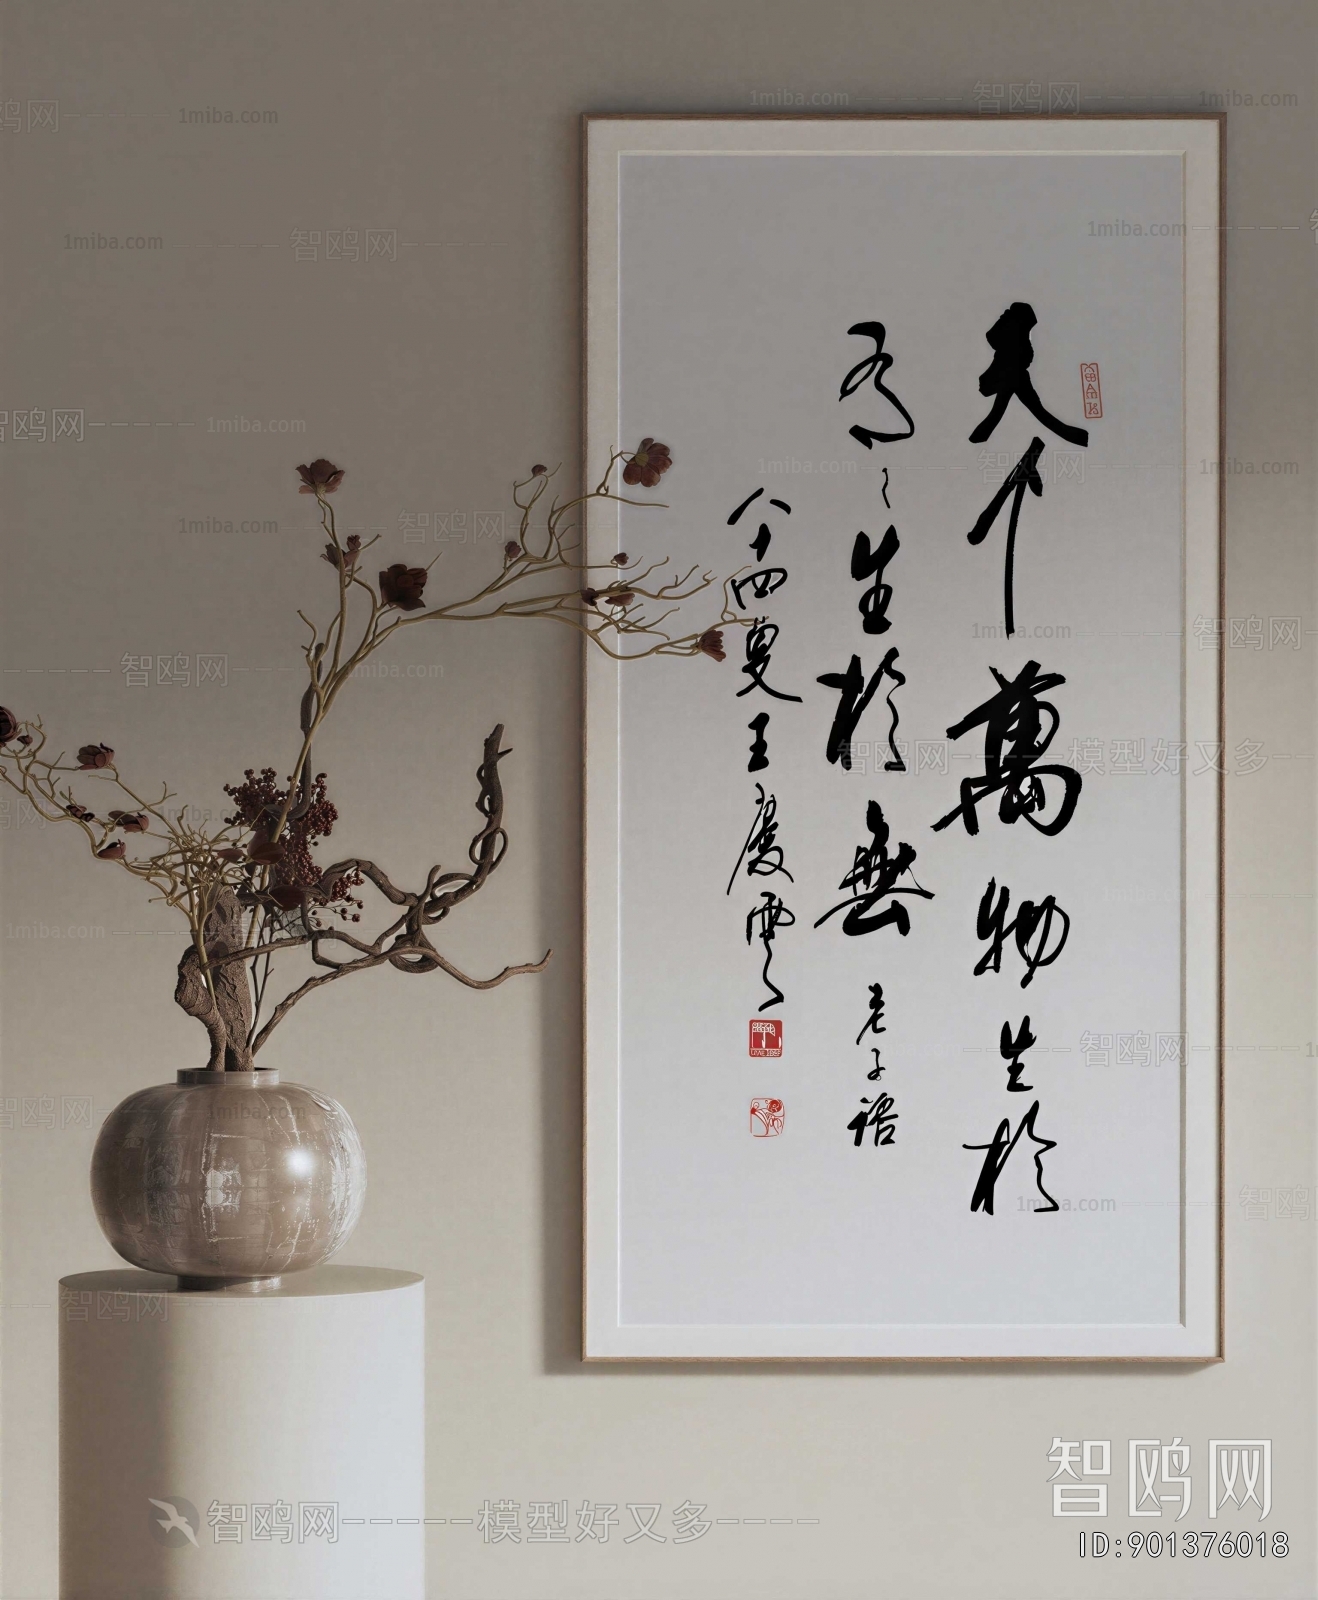 天下萬物生於
有〻生於無 老子語
八十四叟王慶雲
1miba.com
智鸥网-----模型好又多----
智鸥网
ID:901376018